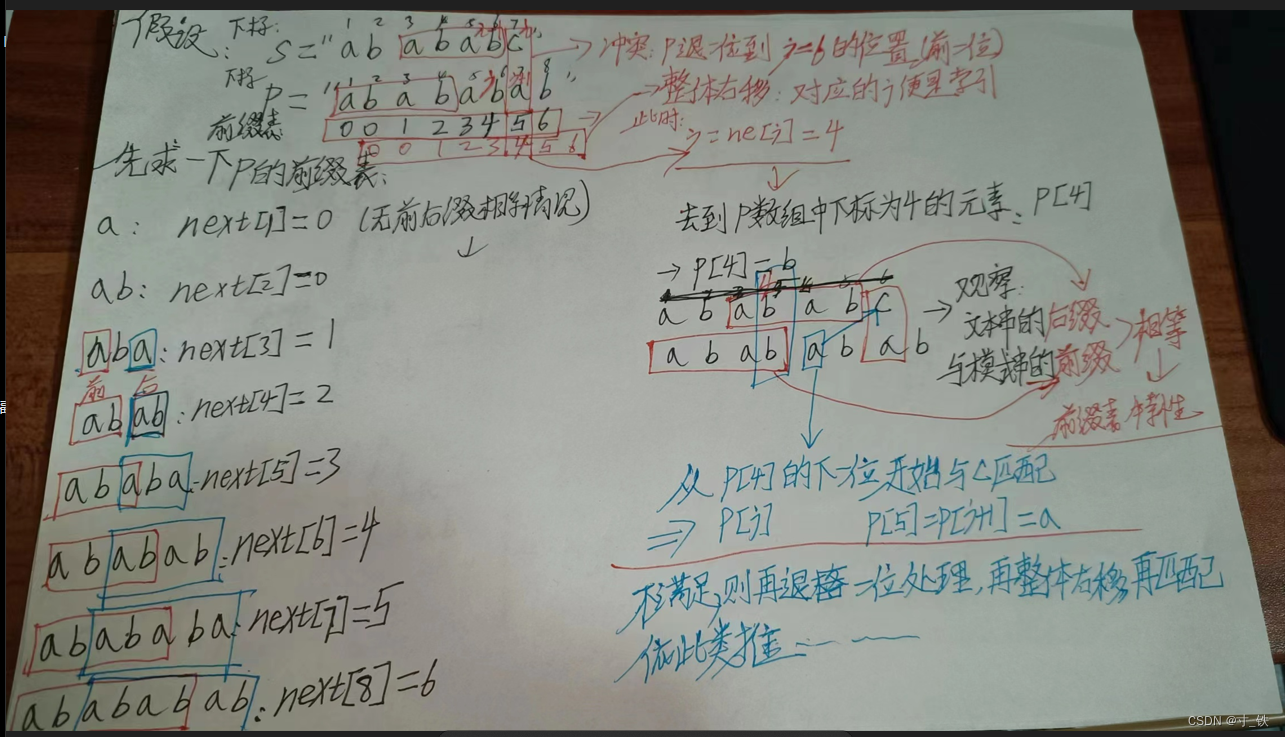 假设:
下标: 1 2 3 4 5 6 7
S = "a b a b a b c"
下标 1 2 3 4 5 6 7 8
P = "a b a b a b a b"
前缀表 0 0 1 2 3 4 5 6
0 0 1 2 3 4 5 6
先求一下P的前缀表:
a: next[1]=0 (无前后缀相等情况)
↓
ab: next[2]=0
aba: next[3]=1
前 后
abab: next[4]=2
ababa: next[5]=3
ababab: next[6]=4
abababa: next[7]=5
abababab: next[8]=6
→ 冲突: P退一位到 j=6的位置(前一位)
→ 整体右移: 对应的j便是索引
此时: j=ne[j]=4
↓
去到P数组中下标为4的元素: P[4]
→ P[4]=b
a b a b a b c
a b a b a b a b
→ 观察:
文本串的后缀
与模式串的前缀
> 相等
↓
前缀表特性
从P[4]的下一位开始与C匹配
⇒ P[j] P[5]=P[j+1]=a
不满足,则再退一位处理,再整体右移,再匹配
依此类推……
CSDN @寸_铁